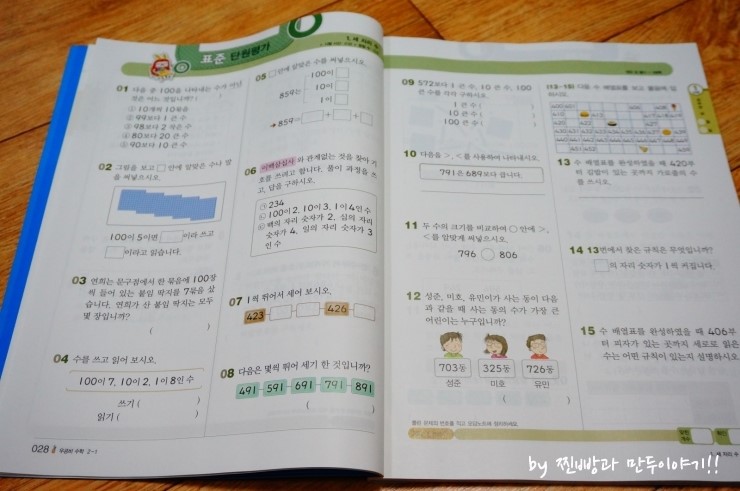 표준 단원평가
1. 세 자리 수
01 다음 중 100을 나타내는 수가 아닌
것은 어느 것입니까? (        )
① 10개씩 10묶음
② 99보다 1 큰 수
③ 98보다 2 작은 수
④ 80보다 20 큰 수
⑤ 90보다 10 큰 수
02 그림을 보고 □ 안에 알맞은 수나 말
을 써넣으시오.
100이 5이면 □이라 쓰고
□이라고 읽습니다.
03 연희는 문구점에서 한 묶음에 100장
씩 들어 있는 붙임 딱지를 7묶음 샀
습니다. 연희가 산 붙임 딱지는 모두
몇 장입니까?
(        )
04 수를 쓰고 읽어 보시오.
100이 7, 10이 2, 1이 8인 수
쓰기 (        )
읽기 (        )
028 우공비 수학 2-1
05 □ 안에 알맞은 수를 써넣으시오.
859는
100이 □
10이 □
1이 □
→ 859= □ + □ + □
06 이백삼십사 와 관계없는 것을 찾아 기
호를 쓰려고 합니다. 풀이 과정을 쓰
고, 답을 구하시오.
㉠ 234
㉡ 100이 2, 10이 3, 1이 4인 수
㉢ 백의 자리 숫자가 2, 십의 자리
숫자가 4, 일의 자리 숫자가 3
인 수
07 1씩 뛰어서 세어 보시오.
423 426
08 다음은 몇씩 뛰어 세기 한 것입니까?
491 591 691 791 891
(        )
09 572보다 1 큰 수, 10 큰 수, 100
큰 수를 각각 구하시오.
1 큰 수 (        )
10 큰 수 (        )
100 큰 수 (        )
10 다음을 >, <를 사용하여 나타내시오.
791은 689보다 큽니다.
(        )
11 두 수의 크기를 비교하여 ○ 안에 >,
<를 알맞게 써넣으시오.
796 ○ 806
12 성준, 미호, 유민이가 사는 동이 다음
과 같을 때 사는 동의 수가 가장 큰
어린이는 누구입니까?
703동 325동 726동
성준 미호 유민
(        )
[13~15] 다음 수 배열표를 보고 물음에 답
하시오.
13 수 배열표를 완성하였을 때 420부
터 김밥이 있는 곳까지 가로줄의 수
를 쓰시오.
14 13번에서 찾은 규칙은 무엇입니까?
□의 자리 숫자가 1씩 커집니다.
15 수 배열표를 완성하였을 때 406부
터 피자가 있는 곳까지 세로로 읽은
수는 어떤 규칙이 있는지 설명하시오.
1. 세 자리 수
by 찐빵과 만두이야기!!